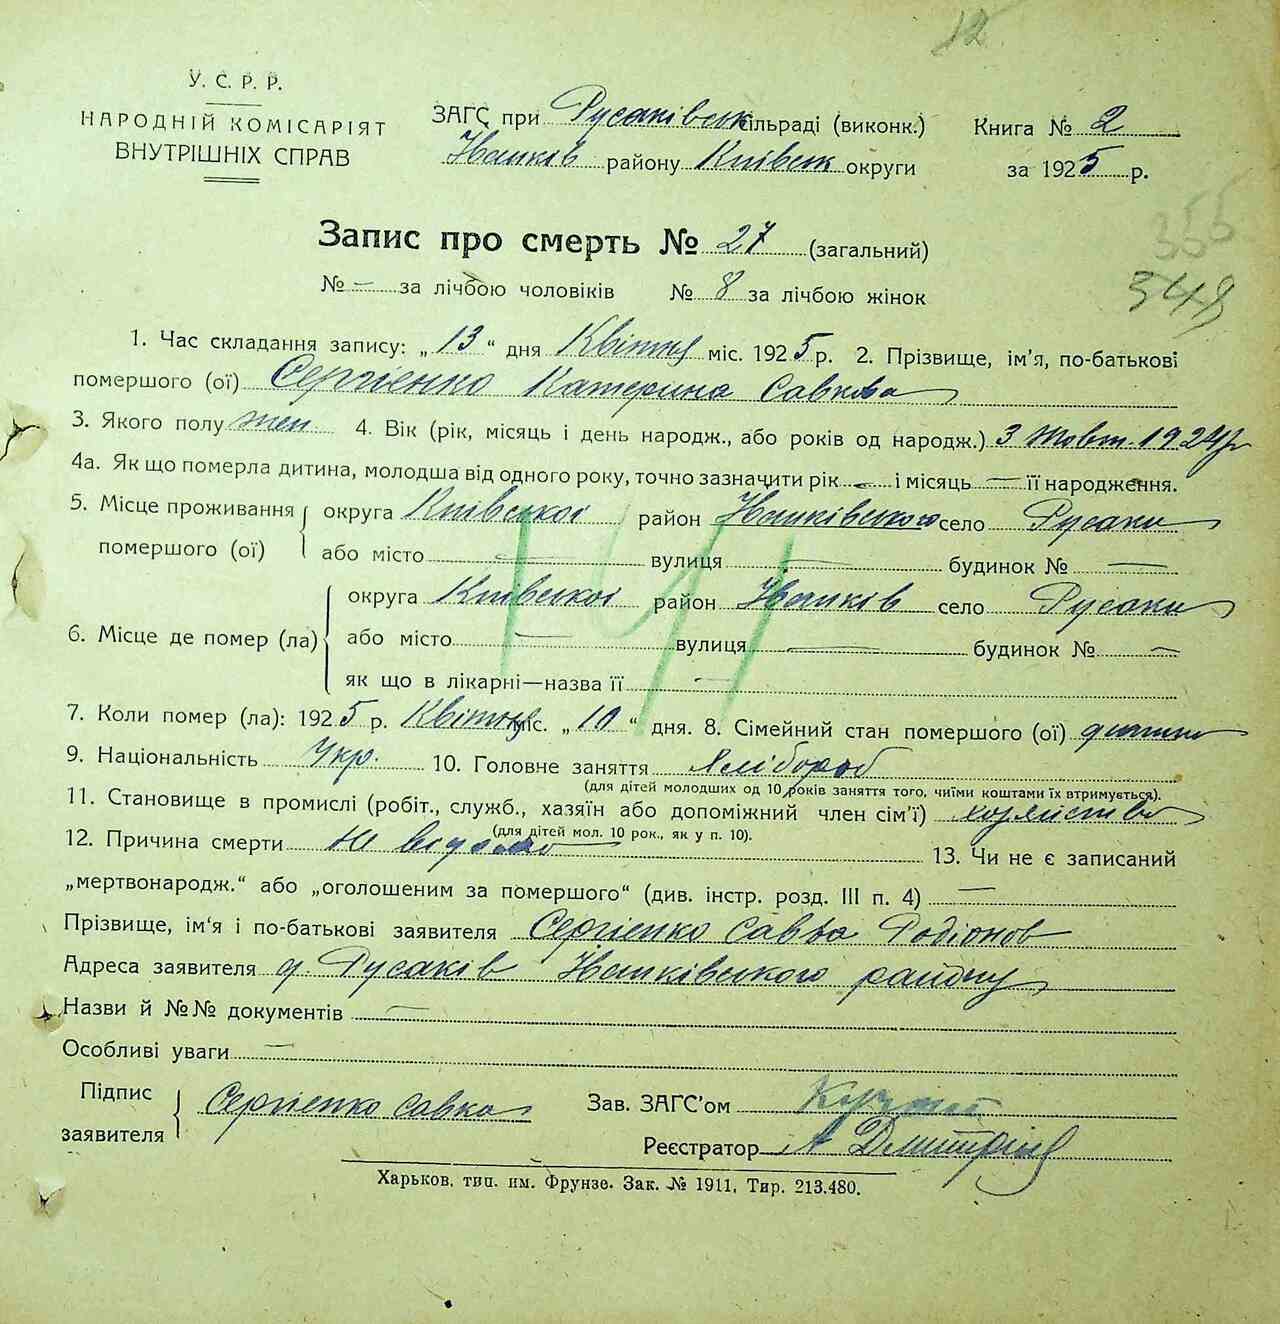 12
У. С. Р. Р.
НАРОДНІЙ КОМІСАРІЯТ
ВНУТРІШНІХ СПРАВ
ЗАГС при Русаківськ сільраді (виконк.)
Іванків району Київськ округи
Книга № 2
за 1925 р.
355
349
Запис про смерть № 27 (загальний)
№ — за лічбою чоловіків № 8 за лічбою жінок
1. Час складання запису: „13“ дня Квітня міс. 1925 р. 2. Прізвище, ім’я, по-батькові
помершого (ої) Сергієнко Катерина Савкова
3. Якого полу жен. 4. Вік (рік, місяць і день народж., або років од народж.) 3 Жовт. 1924 р
4а. Як що померла дитина, молодша від одного року, точно зазначити рік — і місяць — її народження.
5. Місце проживання помершого (ої) округа Київської район Іванківського село Русаки
або місто — вулиця — будинок № —
6. Місце де помер (ла) округа Київської район Іванків село Русаки
або місто — вулиця — будинок № —
як що в лікарні—назва її —
7. Коли помер (ла): 1925 р. Квітня міс. „10“ дня. 8. Сімейний стан помершого (ої) дитина
9. Національність Укр. 10. Головне заняття Хлібороб
(для дітей молодших од 10 років заняття того, чиїми коштами їх втримується).
11. Становище в промислі (робіт., служб., хазяїн або допоміжний член сім’ї) хозяйство
(для дітей мол. 10 рок., як у п. 10).
12. Причина смерти Не відомо 13. Чи не є записаний
„мертвонародж.“ або „оголошеним за помершого“ (див. інстр. розд. III п. 4) —
Прізвище, ім‘я і по-батькові заявителя Сергієнко Савка Родіонов
Адреса заявителя Русаків Іванківського району
Назви й №№ документів —
Особливі уваги —
Підпис заявителя Сергієнко Савка
Зав. ЗАГС’ом
Реєстратор А
Харьков, тип. им. Фрунзе. Зак. № 1911, Тир. 213.480.